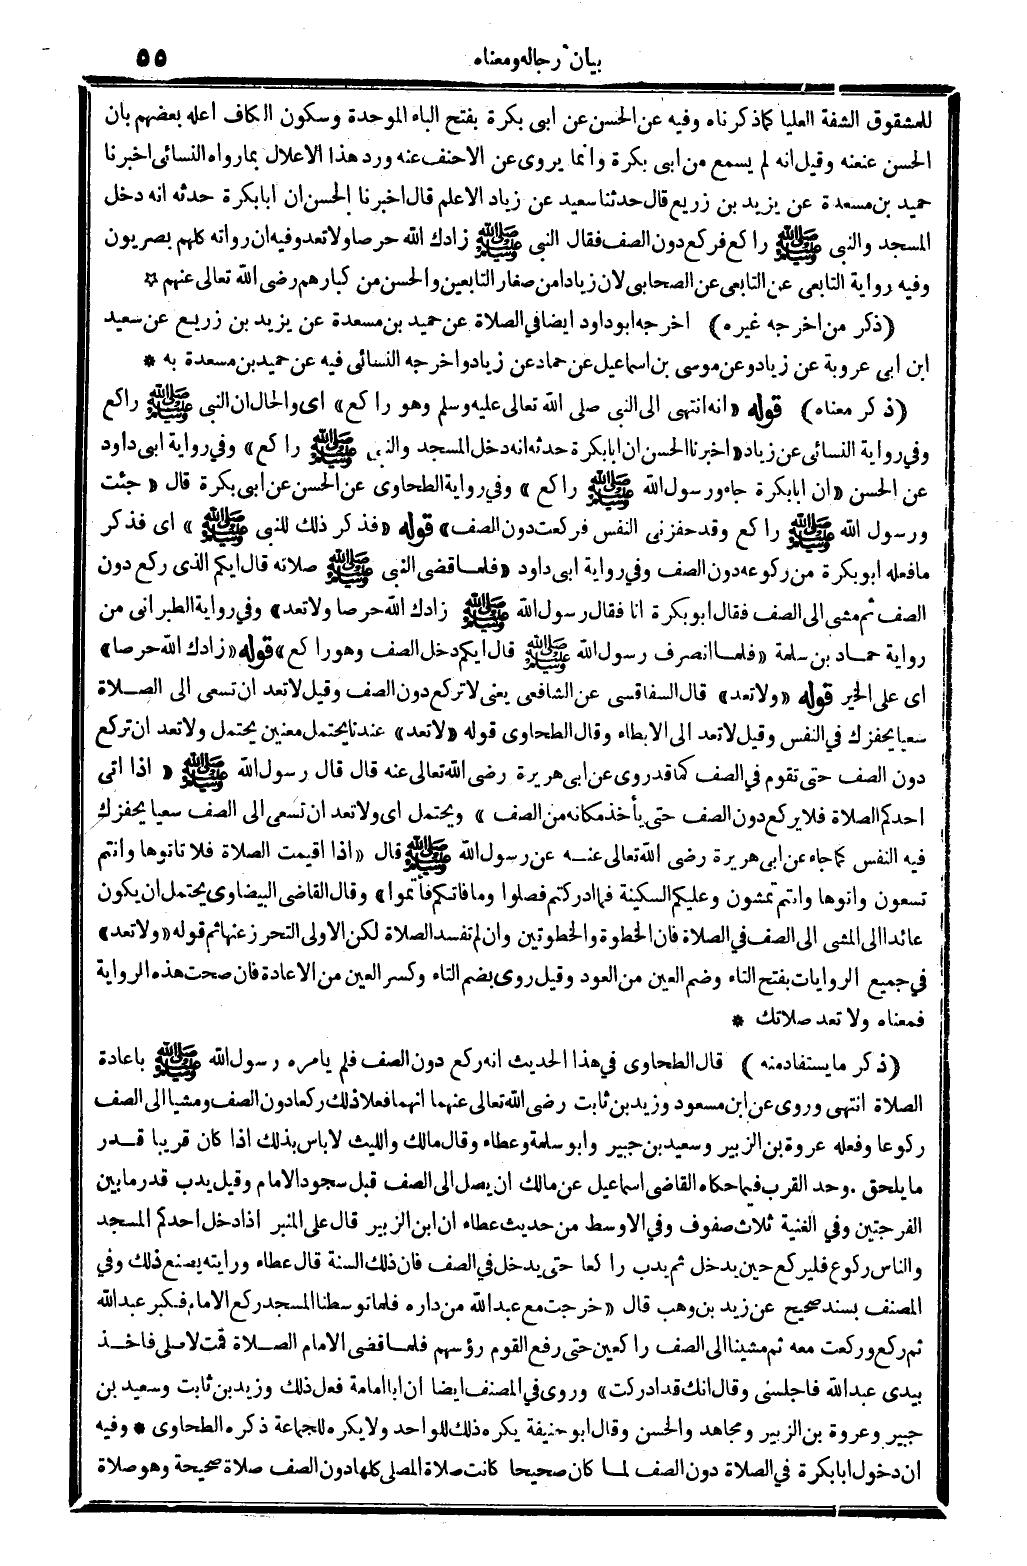 بيان رجاله ومعناه ٥٥
للمشقوق الشفة العليا كما ذكرناه وفيه عن الحسن عن ابى بكرة بفتح الباء الموحدة وسكون الكاف اعله بعضهم بان
الحسن عنعنه وقيل انه لم يسمع من ابى بكرة وانما يروى عن الاحنف عنه ورد هذا الاعلال بما رواه النسائى اخبرنا
حميد بن مسعدة عن يزيد بن زريع قال حدثنا سعيد عن زياد الاعلم قال اخبرنا الحسن ان ابا بكرة حدثه انه دخل
المسجد والنبى ﷺ راكع فركع دون الصف فقال النبى ﷺ زادك الله حرصا ولا تعد وفيه ان رواته كلهم بصريون
وفيه رواية التابعى عن التابعى عن الصحابى لان زيادا من صغار التابعين والحسن من كبارهم رضى الله تعالى عنهم ☆
(ذكر من اخرجه غيره) اخرجه ابو داود ايضا فى الصلاة عن حميد بن مسعدة عن يزيد بن زريع عن سعيد
ابن ابى عروبة عن زياد وعن موسى بن اسماعيل عن حماد عن زياد واخرجه النسائى فيه عن حميد بن مسعدة به *
(ذكر معناه) قوله «انه انتهى الى النبى صلى الله تعالى عليه وسلم وهو راكع» اى والحال ان النبى ﷺ راكع
وفى رواية النسائى عن زياد «اخبرنا الحسن ان ابا بكرة حدثه انه دخل المسجد والنبى ﷺ راكع» وفى رواية ابى داود
عن الحسن «ان ابا بكرة جاء ورسول الله ﷺ راكع» وفى رواية الطحاوى عن الحسن عن ابى بكرة قال «جئت
ورسول الله ﷺ راكع وقد حفزنى النفس فركعت دون الصف» قوله «فذكر ذلك للنبى ﷺ» اى فذكر
ما فعله ابو بكرة من ركوعه دون الصف وفى رواية ابى داود «فلما قضى النبى ﷺ صلاته قال ايكم الذى ركع دون
الصف ثم مشى الى الصف فقال ابو بكرة انا فقال رسول الله ﷺ زادك الله حرصا ولا تعد» وفى رواية الطبرانى من
رواية حماد بن سلمة «فلما انصرف رسول الله ﷺ قال ايكم دخل الصف وهو راكع» قوله «زادك الله حرصا»
اى على الخير قوله «ولا تعد» قال السفاقسى عن الشافعى يعنى لا تركع دون الصف وقيل لا تعد ان تسعى الى الصلاة
سعيا يحفزك فى النفس وقيل لا تعد الى الابطاء وقال الطحاوى قوله «لا تعد» عندنا يحتمل معنين يحتمل ولا تعد ان تركع
دون الصف حتى تقوم فى الصف كما قد روى عن ابى هريرة رضى الله تعالى عنه قال قال رسول الله ﷺ «اذا اتى
احدكم الصلاة فلا يركع دون الصف حتى يأخذ مكانه من الصف» ويحتمل اى ولا تعد ان تسعى الى الصف سعيا يحفزك
فيه النفس كما جاء عن ابى هريرة رضى الله تعالى عنه عن رسول الله ﷺ قال «اذا اقيمت الصلاة فلا تاتوها وانتم
تسعون واتوها وانتم تمشون وعليكم السكينة فما ادركتم فصلوا وما فاتكم فأتموا» وقال القاضى البيضاوى يحتمل ان يكون
عائدا الى المشى الى الصف فى الصلاة فان الخطوة والخطوتين وان لم تفسد الصلاة لكن الاولى التحرز عنها ثم قوله «ولا تعد»
فى جميع الروايات بفتح التاء وضم العين من العود وقيل روى بضم التاء وكسر العين من الاعادة فان صحت هذه الرواية
فمعناه ولا تعد صلاتك *
(ذكر ما يستفاد منه) قال الطحاوى فى هذا الحديث انه ركع دون الصف فلم يامره رسول الله ﷺ باعادة
الصلاة انتهى وروى عن ابن مسعود وزيد بن ثابت رضى الله تعالى عنهما انهما فعلا ذلك ركعا دون الصف ومشيا الى الصف
ركوعا وفعله عروة بن الزبير وسعيد بن جبير وابو سلمة وعطاء وقال مالك والليث لا باس بذلك اذا كان قريبا قدر
ما يلحق . وحد القرب فيما حكاه القاضى اسماعيل عن مالك ان يصل الى الصف قبل سجود الامام وقيل يدب قدر ما بين
الفرجتين وفى الغنية ثلاث صفوف وفى الاوسط من حديث عطاء ان ابن الزبير قال على المنبر اذا دخل احدكم المسجد
والناس ركوع فليركع حين يدخل ثم يدب راكعا حتى يدخل فى الصف فان ذلك السنة قال عطاء ورايته يصنع ذلك وفى
المصنف بسند صحيح عن زيد بن وهب قال «خرجت مع عبد الله من داره فلما توسطنا المسجد ركع الامام فكبر عبد الله
ثم ركع وركعت معه ثم مشينا الى الصف راكعين حتى رفع القوم رؤسهم فلما قضى الامام الصلاة قمت لاصلى فاخذ
بيدى عبد الله فاجلسنى وقال انك قد ادركت» وروى فى المصنف ايضا ان ابا امامة فعل ذلك وزيد بن ثابت وسعيد بن
جبير وعروة بن الزبير ومجاهد والحسن وقال ابو حنيفة يكره ذلك للواحد ولا يكره للجماعة ذكره الطحاوى * وفيه
ان دخول ابا بكرة فى الصلاة دون الصف لما كان صحيحا كانت صلاة المصلى كلها دون الصف صلاة صحيحة وهو صلاة